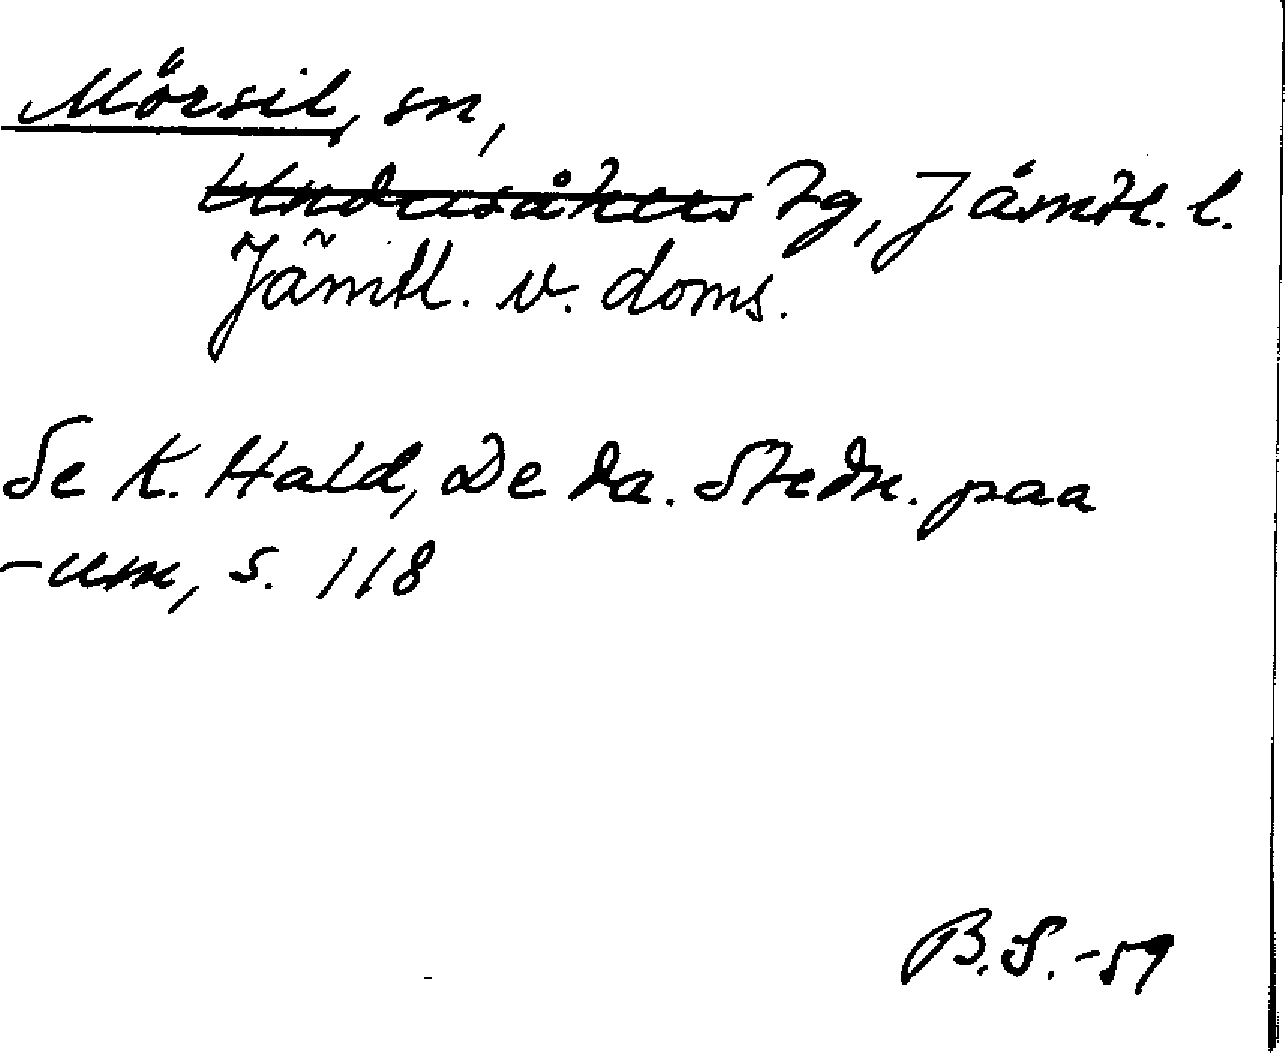 Mörsil, sn,
Undersåkers tg, Jämtl. l.
Jämtl. v. doms.
Se K. Hald, De da. Stedn. paa
-um, s. 118
B.S.-59